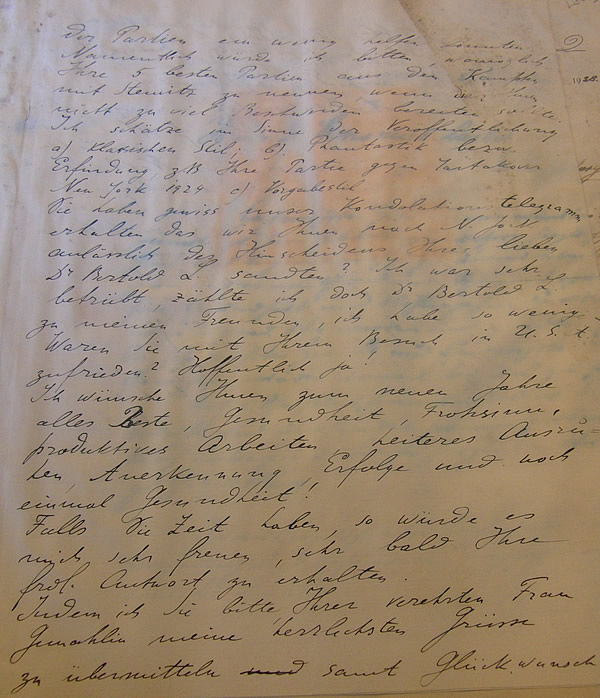 der Partien ein wenig helfen könnten.
②
Namentlich würde ich bitten, womöglich
Ihre 5 besten Partien aus den Kämpfen
mit Steinitz zu nennen, wenn dies Ihnen
nicht zu viel Beschwerden bereiten sollte.
Ich schätze im Sinne der Veröffentlichung
a) klassischen Stil; b) Phantastik bezw.
Erfindung, z B Ihre Partie gegen Tartakower
New York 1924 c) Vorgabestil
Sie haben gewiss unser Kondolationstelegramm
erhalten das wir Ihnen nach N. York
anlässlich des Hinscheidens Ihres lieben
Dr Bertold L. sandten? Ich war sehr
betrübt, zählte ich doch Dr Bertold L.
zu meinen Freunden, ich habe so wenig.
Waren Sie mit Ihrem Besuch in U. S. A.
zufrieden? Hoffentlich ja!
Ich wünsche Ihnen zum neuen Jahre
alles Beste, Gesundheit, Frohsinn,
produktives Arbeiten, heiteres Ausru-
hen, Anerkennung, Erfolge und noch
einmal Gesundheit!
Falls Sie Zeit haben, so würde es
mich sehr freuen, sehr bald Ihre
frdl. Antwort zu erhalten.
Indem ich Sie bitte, Ihrer verehrten Frau
Gemahlin meine herzlichsten Grüsse
zu übermitteln und samt Glückwunsch